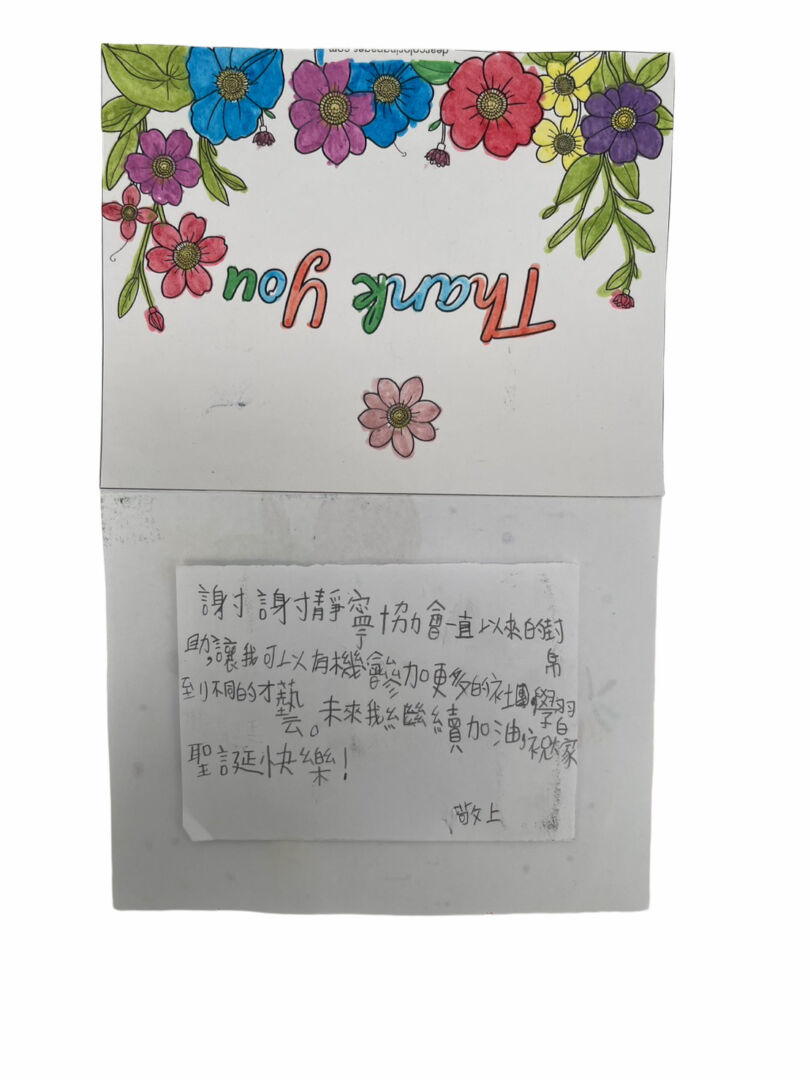 dearcoloringpages.com
Thank You
謝謝靜寧協會一直以來的幫
助,讓我可以有機會參加更多的社團,學習
到不同的才藝。未來我繼續加油,祝大家
聖誕快樂!
敬上